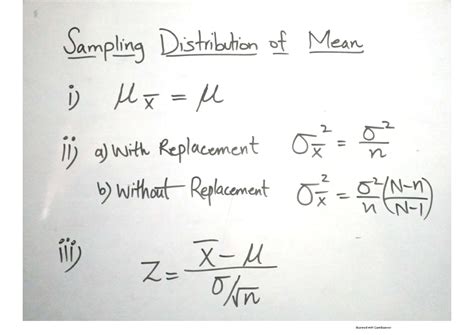 Sampling Distribution of Mean
i) μx̄ = μ
ii) a) With Replacement σx̄² = σ²/n
b) Without Replacement σx̄² = σ²/n (N-n)/(N-1)
iii) Z = (x̄ - μ)/(σ/√n)
Scanned with CamScanner